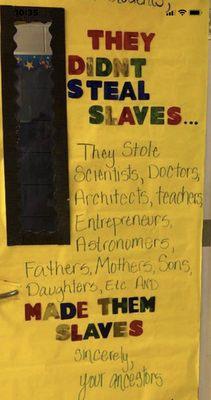 10:35
students,
THEY
DIDNT
STEAL
SLAVES...
They Stole
Scientists, Doctors,
Architects, teachers,
Entrepreneurs,
Astronomers,
Fathers, Mothers, Sons,
Daughters, Etc AND
MADE THEM
SLAVES
sincerely,
your ancestors